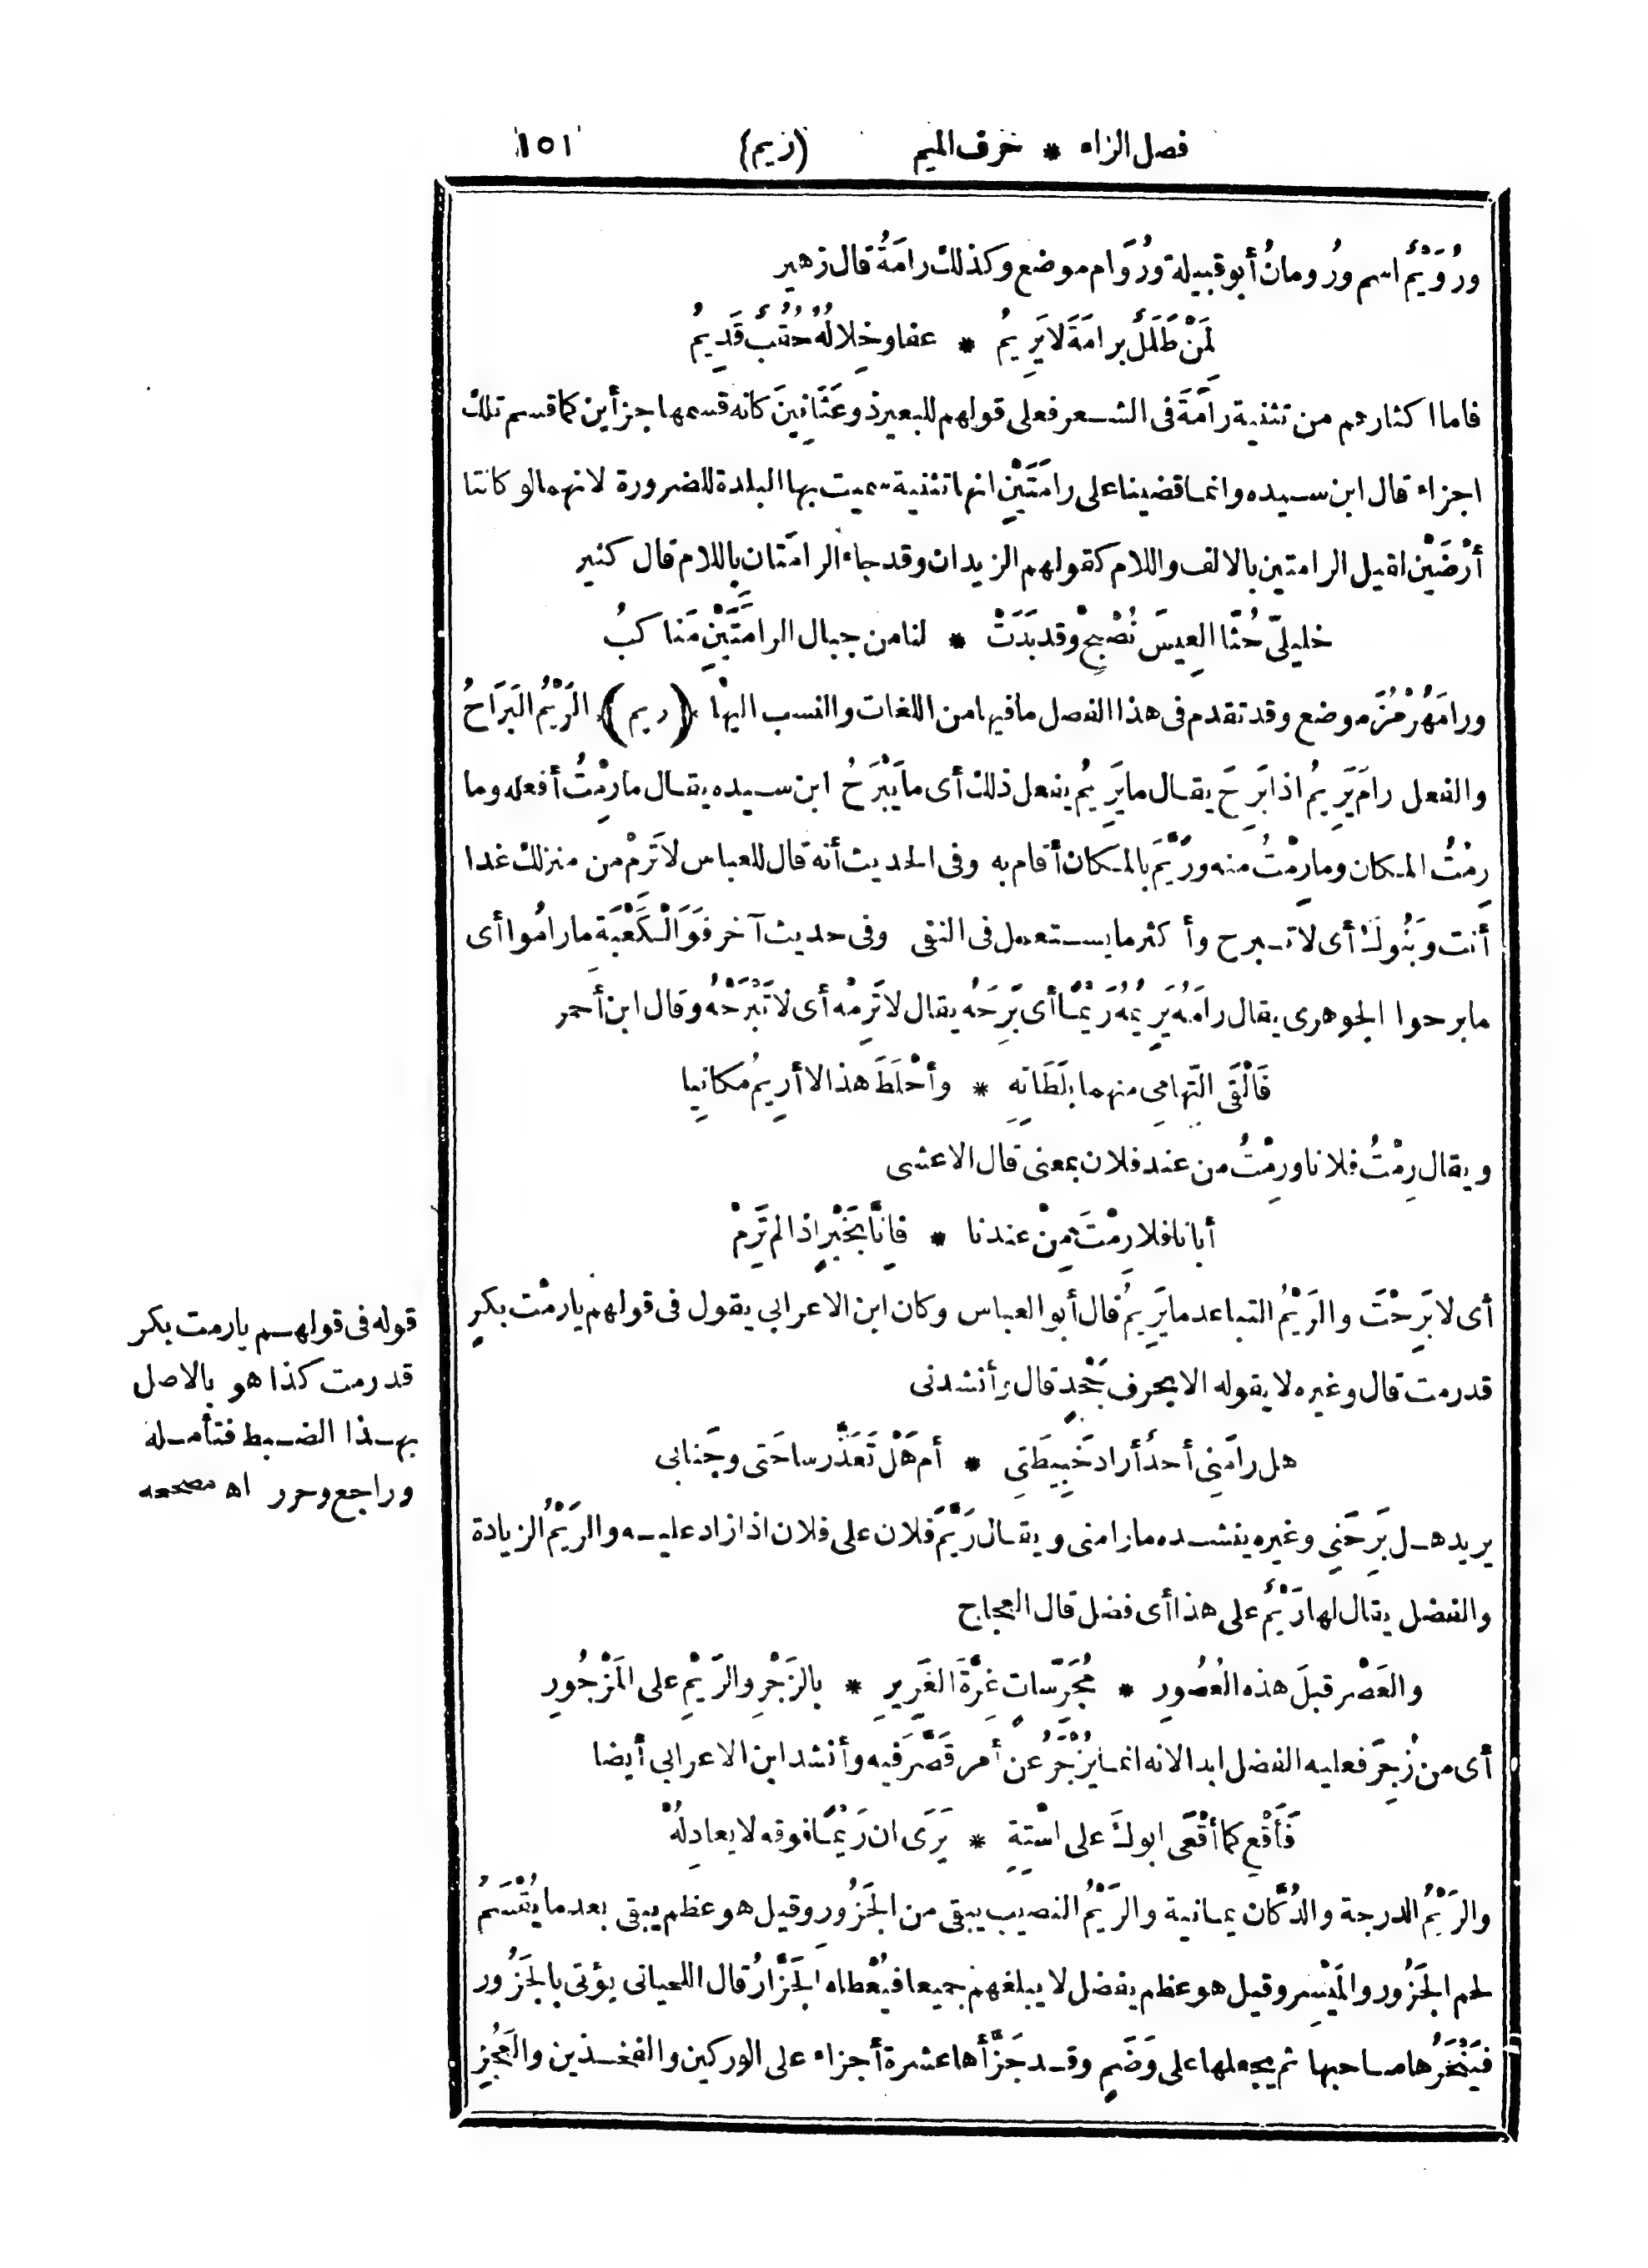 فصل الراء * حرف الميم (ريم) ١٥١
ورُوَيْمٌ اسم ورُومانُ أبو قبيلة ورُوَام موضع وكذلك رامَةُ قال زهير
لِمَنْ طَلَلٌ بِرامَةَ لا يَرِيمُ * عفا وخِلالُهُ حُقُبٌ قَدِيمُ
فاما اكثارهم من تثنية رامَةَ فى الشعر فعلى قولهم للبعير ذو عَثَانِينَ كانه قسمها جزأين كما قسم تلك
اجزاء قال ابن سيده وانما قضينا على رامَتَيْنِ انها تثنية سميت بها البلدة للضرورة لانهما لو كانتا
أرْضَيْنِ لقيل الرامتين بالالف واللام كقولهم الزيدان وقد جاء الرامَتان بِاللام قال كثير
خليلىّ حُثَّا العِيسَ نُصْبِحْ وقد بَدَتْ * لنا من جبال الرامَتَيْنِ مَناكبُ
ورامَهُرْمُزَ موضع وقد تقدم فى هذا الفصل ما فيها من اللغات والنسب اليها (ريم) الرَيْمُ البَرَاحُ
والفعل رامَ يَرِيمُ اذا بَرِحَ يقال ما يَرِيمُ يفعل ذلك أى ما يَبْرَحُ ابن سيده يقال ما رِمْتُ أفعله وما
رِمْتُ المكان وما رِمْتُ منه ورَيَّمَ بالمكان أقام به وفى الحديث أنه قال للعباس لا تَرِمْ من منزلك غدا
أنت وبَنُوك أى لا تبرح وأكثر ما يستعمل فى النفى وفى حديث آخر فوَالْكَعْبَةِ ما رامُوا أى
ما برحوا الجوهرى يقال رامَهُ يَرِيمُهُ رَيْمًا أى بَرِحَهُ يقال لا تَرِمْه أى لا تَبْرَحْهُ وقال ابن أحمر
فَألْقَى التِّهامِى منهما بلَطَاتِهِ * وأحْلَطَ هذا لا أرِيمُ مَكانِيا
ويقال رِمْتُ فلانا ورِمْتُ من عند فلان بمعنى قال الاعشى
أبانا فلا رِمْتَ مِنْ عندنا * فانَّا بِخَيْرٍ اذا لم تَرِمْ
أى لا بَرِحْتَ والرَيْمُ التباعد ما يَرِيمُ قال أبو العباس وكان ابن الاعرابى يقول فى قولهم يا رمْت بكرٍ
قد رمت قال وغيره لا يقوله الا بحرف جَحْدٍ قال وأنشدنى
هل رامَنِى أحدٌ أراد خَبِيطَتِى * أم هَلْ تَعَذَّر ساحَتى وجَنابى
يريد هل بَرِحَنِى وغيره ينشده ما رامنى ويقال رَيَّمَ فلان على فلان اذا زاد عليه والرَيْمُ الزيادة
والفضل يقال لها رَيْمٌ على هذا أى فضل قال العجاج
والعَصْر قبلَ هذه العُصُورِ * مُجَرِّساتٍ غِرَّةَ الغَرِيرِ * بالزَجْرِ والرَيْمِ على المَزْجُورِ
أى من زُجِرَ فعليه الفضل ابدا لانه انما يُزْجَرُ عن أمر قَصَّرَ فيه وأنشد ابن الاعرابى أيضا
فَأقْعِ كما أقْعَى ابوكَ على اسْتِهِ * يَرَى ان رَيْمًا فوقه لا يعادِلُهْ
والرَيْمُ الدرجة والدُكَّان يمانية والرَيْمُ النصيب يبقى من الجَزُورِ وقيل هو عظم يبقى بعد ما يُقْسَمُ
لحم الجَزُور والمَيْسِر وقيل هو عظم يفضل لا يبلغهم جميعا فيُعْطاه الجَزَّارُ قال اللحيانى يؤتى بالجَزُور
فيَنْحَرُها صاحبها ثم يجعلها على وَضَمٍ وقد جَزَّأها عشرة أجزاء على الوركين والفخذين والعَجُزِ
قوله فى قولهم يا رمت بكر
قد رمت كذا هو بالاصل
بهذا الضبط فتأمله
وراجع وحرر اه مصححه